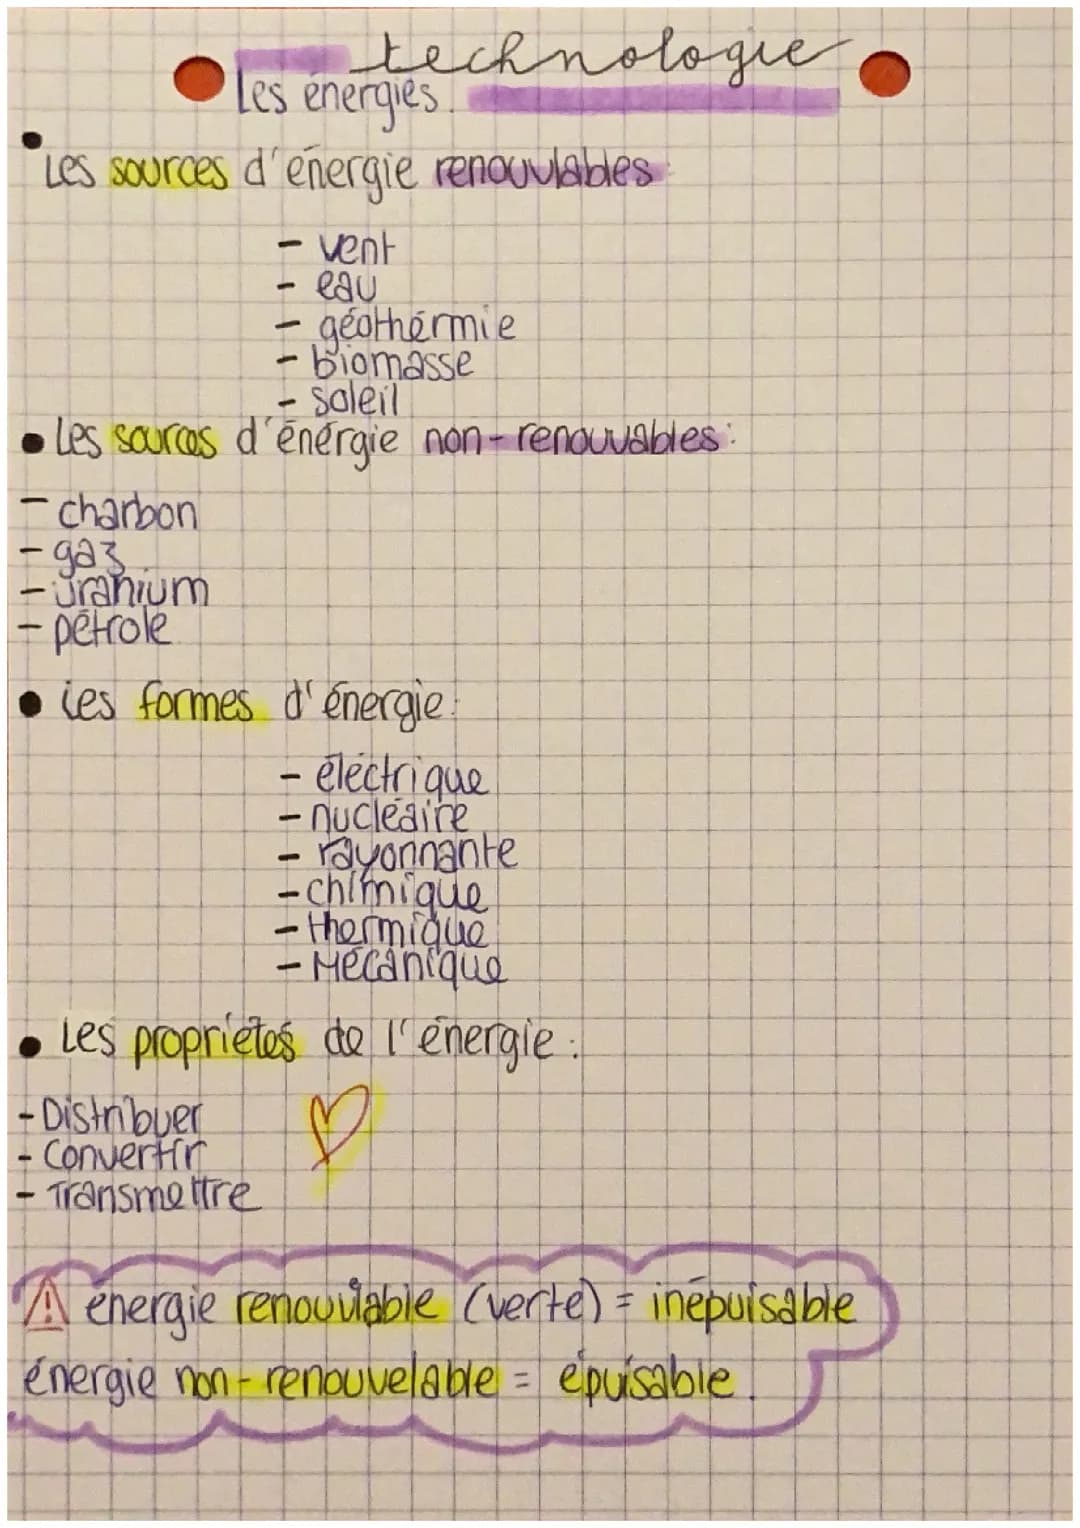 technologie
Les énergies.
Les sources d'énergie renouvlables:
- vent
- eau
- géothérmie
- biomasse
- soleil
Les sources d'énérgie non-renouvables:
- charbon
- gaz
- uranium
- pétrole
Les formes d'énergie:
- éléctrique
- nucléaire
- rayonnante
- chimique
- thermique
- Mécanique
Les propriétés de l'énergie:
- Distribuer
- Convertir
- Transmettre
⚠ énergie renouvlable (verte) = inépuisable
énergie non-renouvelable = épuisable.